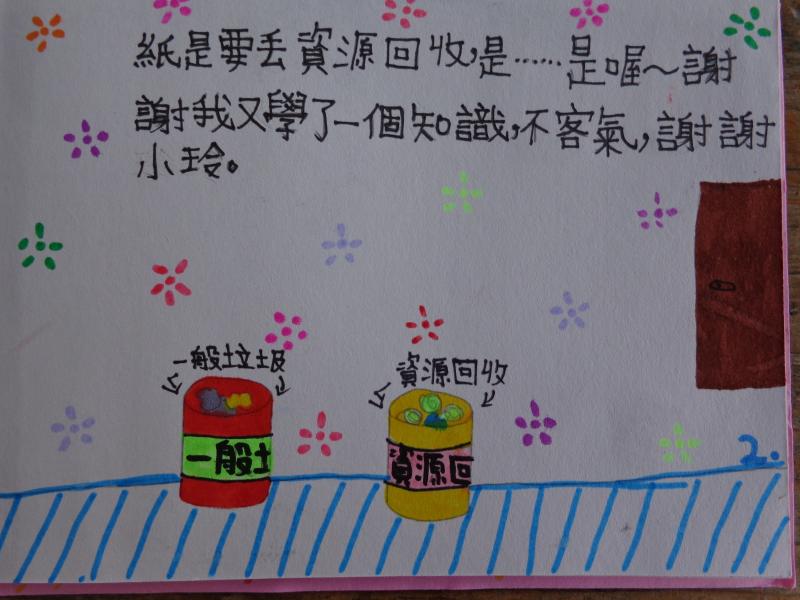 紙是要丟資源回收,是……是喔~謝
謝我又學了一個知識,不客氣,謝謝
小玲。
一般垃圾
資源回收
一般土
資源回
2.